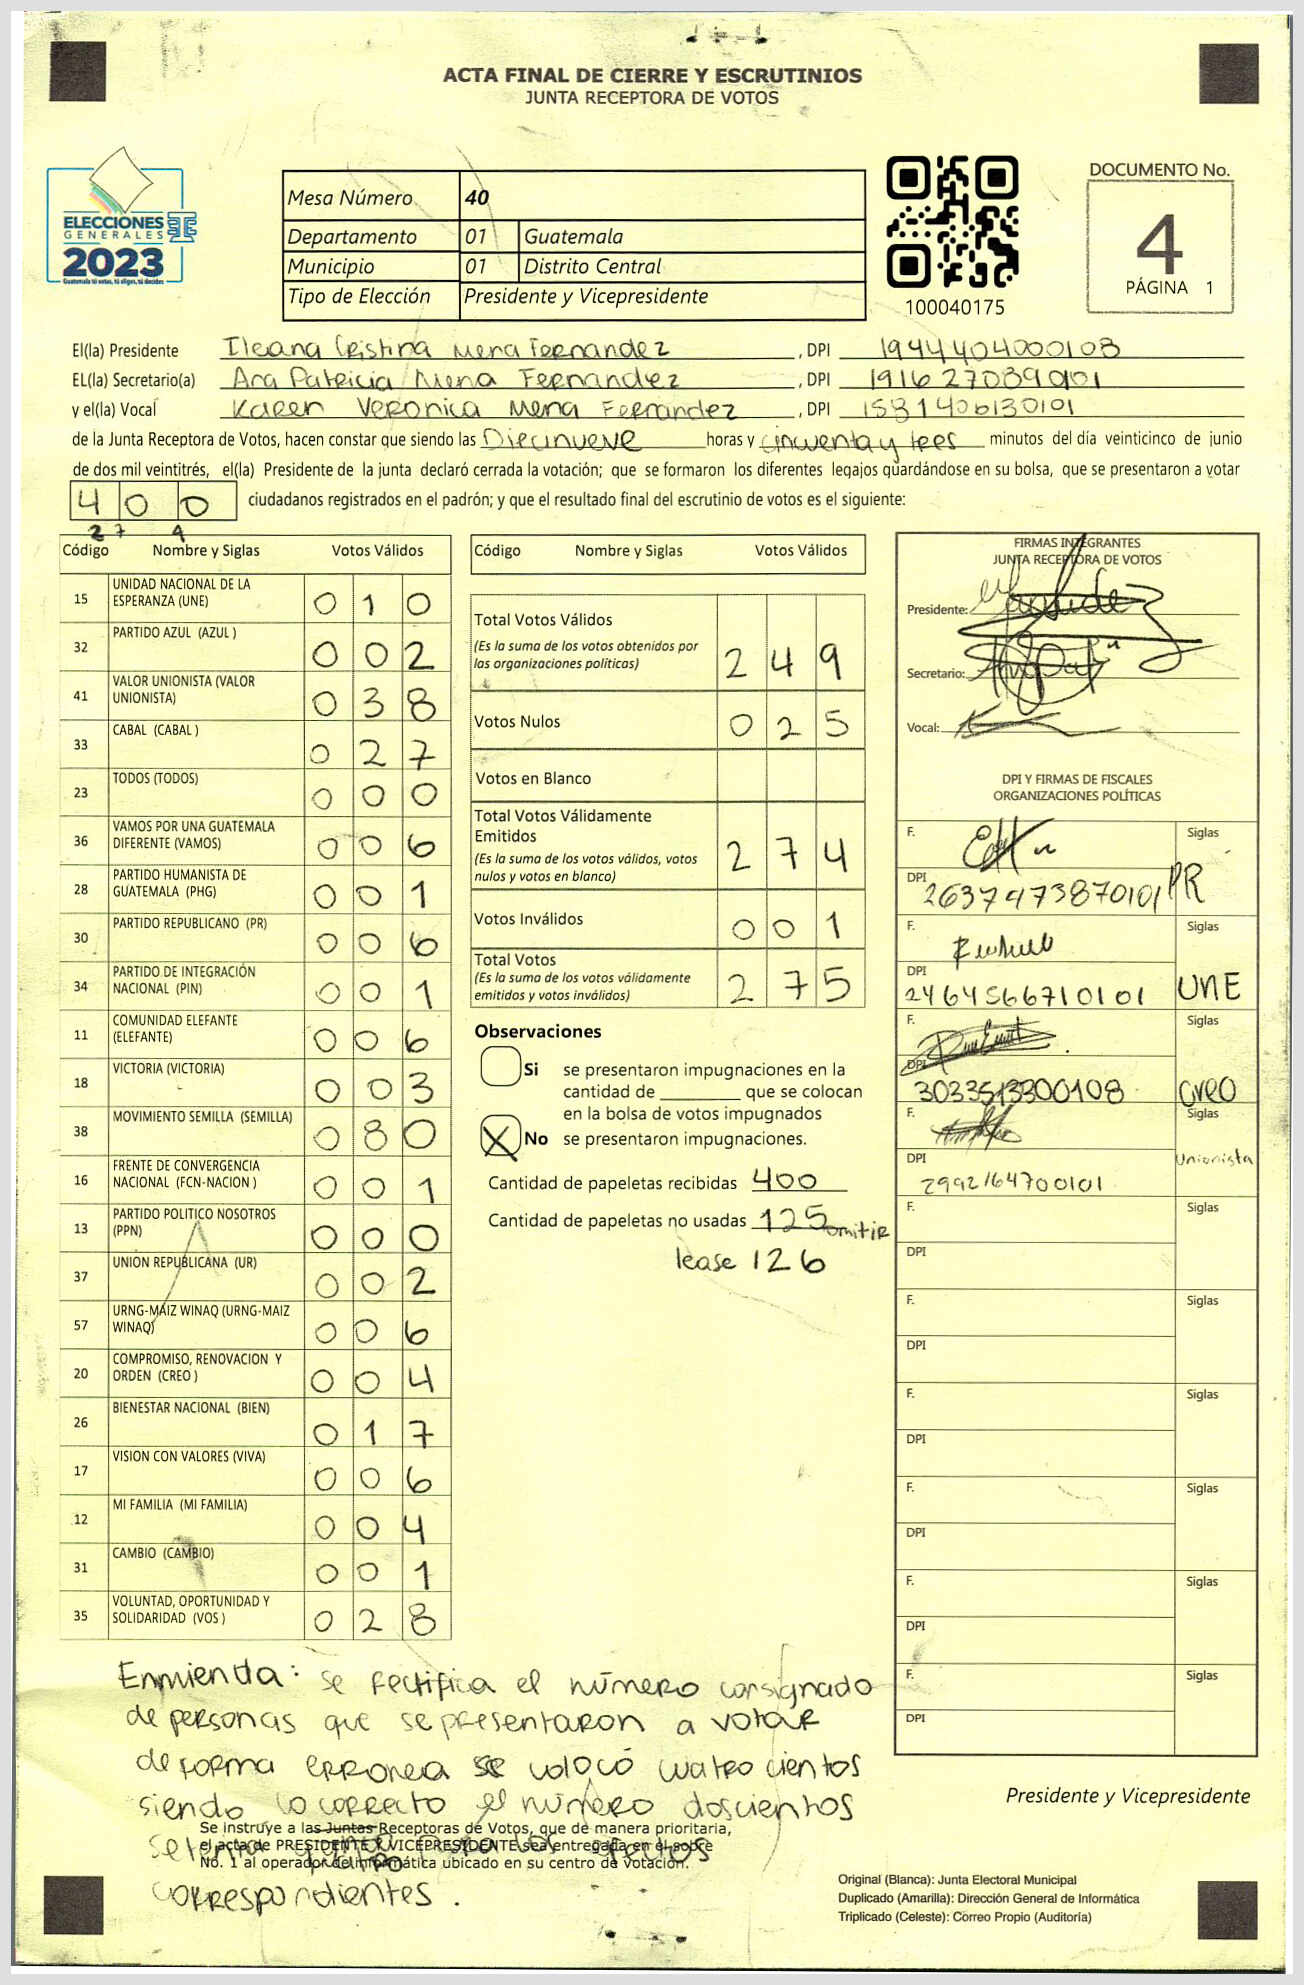 ACTA FINAL DE CIERRE Y ESCRUTINIOS
JUNTA RECEPTORA DE VOTOS
ELECCIONES
GENERALES
2023
Guatemala tú votas, tú eliges, tú decides
Mesa Número 40
Departamento 01 Guatemala
Municipio 01 Distrito Central
Tipo de Elección Presidente y Vicepresidente
100040175
DOCUMENTO No.
4
PÁGINA 1
El(la) Presidente Ileana Cristina Mena Fernandez, DPI 1944404000108
EL(la) Secretario(a) Ana Patricia Mena Fernandez, DPI
y el(la) Vocal Karen Veronica Mena Fernandez, DPI 1581406130101
de la Junta Receptora de Votos, hacen constar que siendo las Diecinueve horas y cincuenta y tres minutos del día veinticinco de junio
de dos mil veintitrés, el(la) Presidente de la junta declaró cerrada la votación; que se formaron los diferentes legajos guardándose en su bolsa, que se presentaron a votar
4 0 0 ciudadanos registrados en el padrón; y que el resultado final del escrutinio de votos es el siguiente:
2 7 4
Código Nombre y Siglas Votos Válidos
15 UNIDAD NACIONAL DE LA ESPERANZA (UNE) 0 1 0
32 PARTIDO AZUL (AZUL ) 0 0 2
41 VALOR UNIONISTA (VALOR UNIONISTA) 0 3 8
33 CABAL (CABAL ) 0 2 7
23 TODOS (TODOS) 0 0 0
36 VAMOS POR UNA GUATEMALA DIFERENTE (VAMOS) 0 0 6
28 PARTIDO HUMANISTA DE GUATEMALA (PHG) 0 0 1
30 PARTIDO REPUBLICANO (PR) 0 0 6
34 PARTIDO DE INTEGRACIÓN NACIONAL (PIN) 0 0 1
11 COMUNIDAD ELEFANTE (ELEFANTE) 0 0 6
18 VICTORIA (VICTORIA) 0 0 3
38 MOVIMIENTO SEMILLA (SEMILLA) 0 8 0
16 FRENTE DE CONVERGENCIA NACIONAL (FCN-NACION ) 0 0 1
13 PARTIDO POLITICO NOSOTROS (PPN) 0 0 0
37 UNION REPUBLICANA (UR) 0 0 2
57 URNG-MAIZ WINAQ (URNG-MAIZ WINAQ) 0 0 6
20 COMPROMISO, RENOVACION Y ORDEN (CREO ) 0 0 4
26 BIENESTAR NACIONAL (BIEN) 0 1 7
17 VISION CON VALORES (VIVA) 0 0 6
12 MI FAMILIA (MI FAMILIA) 0 0 4
31 CAMBIO (CAMBIO) 0 0 1
35 VOLUNTAD, OPORTUNIDAD Y SOLIDARIDAD (VOS ) 0 2 8
Código Nombre y Siglas Votos Válidos
Total Votos Válidos 2 4 9
(Es la suma de los votos obtenidos por
las organizaciones políticas)
Votos Nulos 0 2 5
Votos en Blanco
Total Votos Válidamente
Emitidos 2 7 4
(Es la suma de los votos válidos, votos
nulos y votos en blanco)
Votos Inválidos 0 0 1
Total Votos 2 7 5
(Es la suma de los votos válidamente
emitidos y votos inválidos)
Observaciones
Si se presentaron impugnaciones en la
cantidad de ________ que se colocan
en la bolsa de votos impugnados
X No se presentaron impugnaciones.
Cantidad de papeletas recibidas 400
Cantidad de papeletas no usadas 125 omitir
lease 126
FIRMAS INTEGRANTES
JUNTA RECEPTORA DE VOTOS
Presidente:
Secretario:
Vocal:
DPI Y FIRMAS DE FISCALES
ORGANIZACIONES POLÍTICAS
F. Siglas
DPI 2637473870101 PR
F. Siglas
DPI 2464566710101 UNE
F. Siglas
DPI 3033513300108 Creo
F. Siglas
DPI 2992164700101 Unionista
F. Siglas
DPI
F. Siglas
DPI
F. Siglas
DPI
F. Siglas
DPI
F. Siglas
DPI
F. Siglas
DPI
Enmienda: se rectifica el número consignado
de personas que se presentaron a votar
de forma erronea se colocó cuatro cientos
siendo lo correcto el número doscientos
Se instruye a las Juntas Receptoras de Votos, que de manera prioritaria,
el acta de PRESIDENTE Y VICEPRESIDENTE sea entregada en el sobre
No. 1 al operador de informática ubicado en su centro de votación.
correspondientes.
Presidente y Vicepresidente
Original (Blanca): Junta Electoral Municipal
Duplicado (Amarilla): Dirección General de Informática
Triplicado (Celeste): Correo Propio (Auditoría)